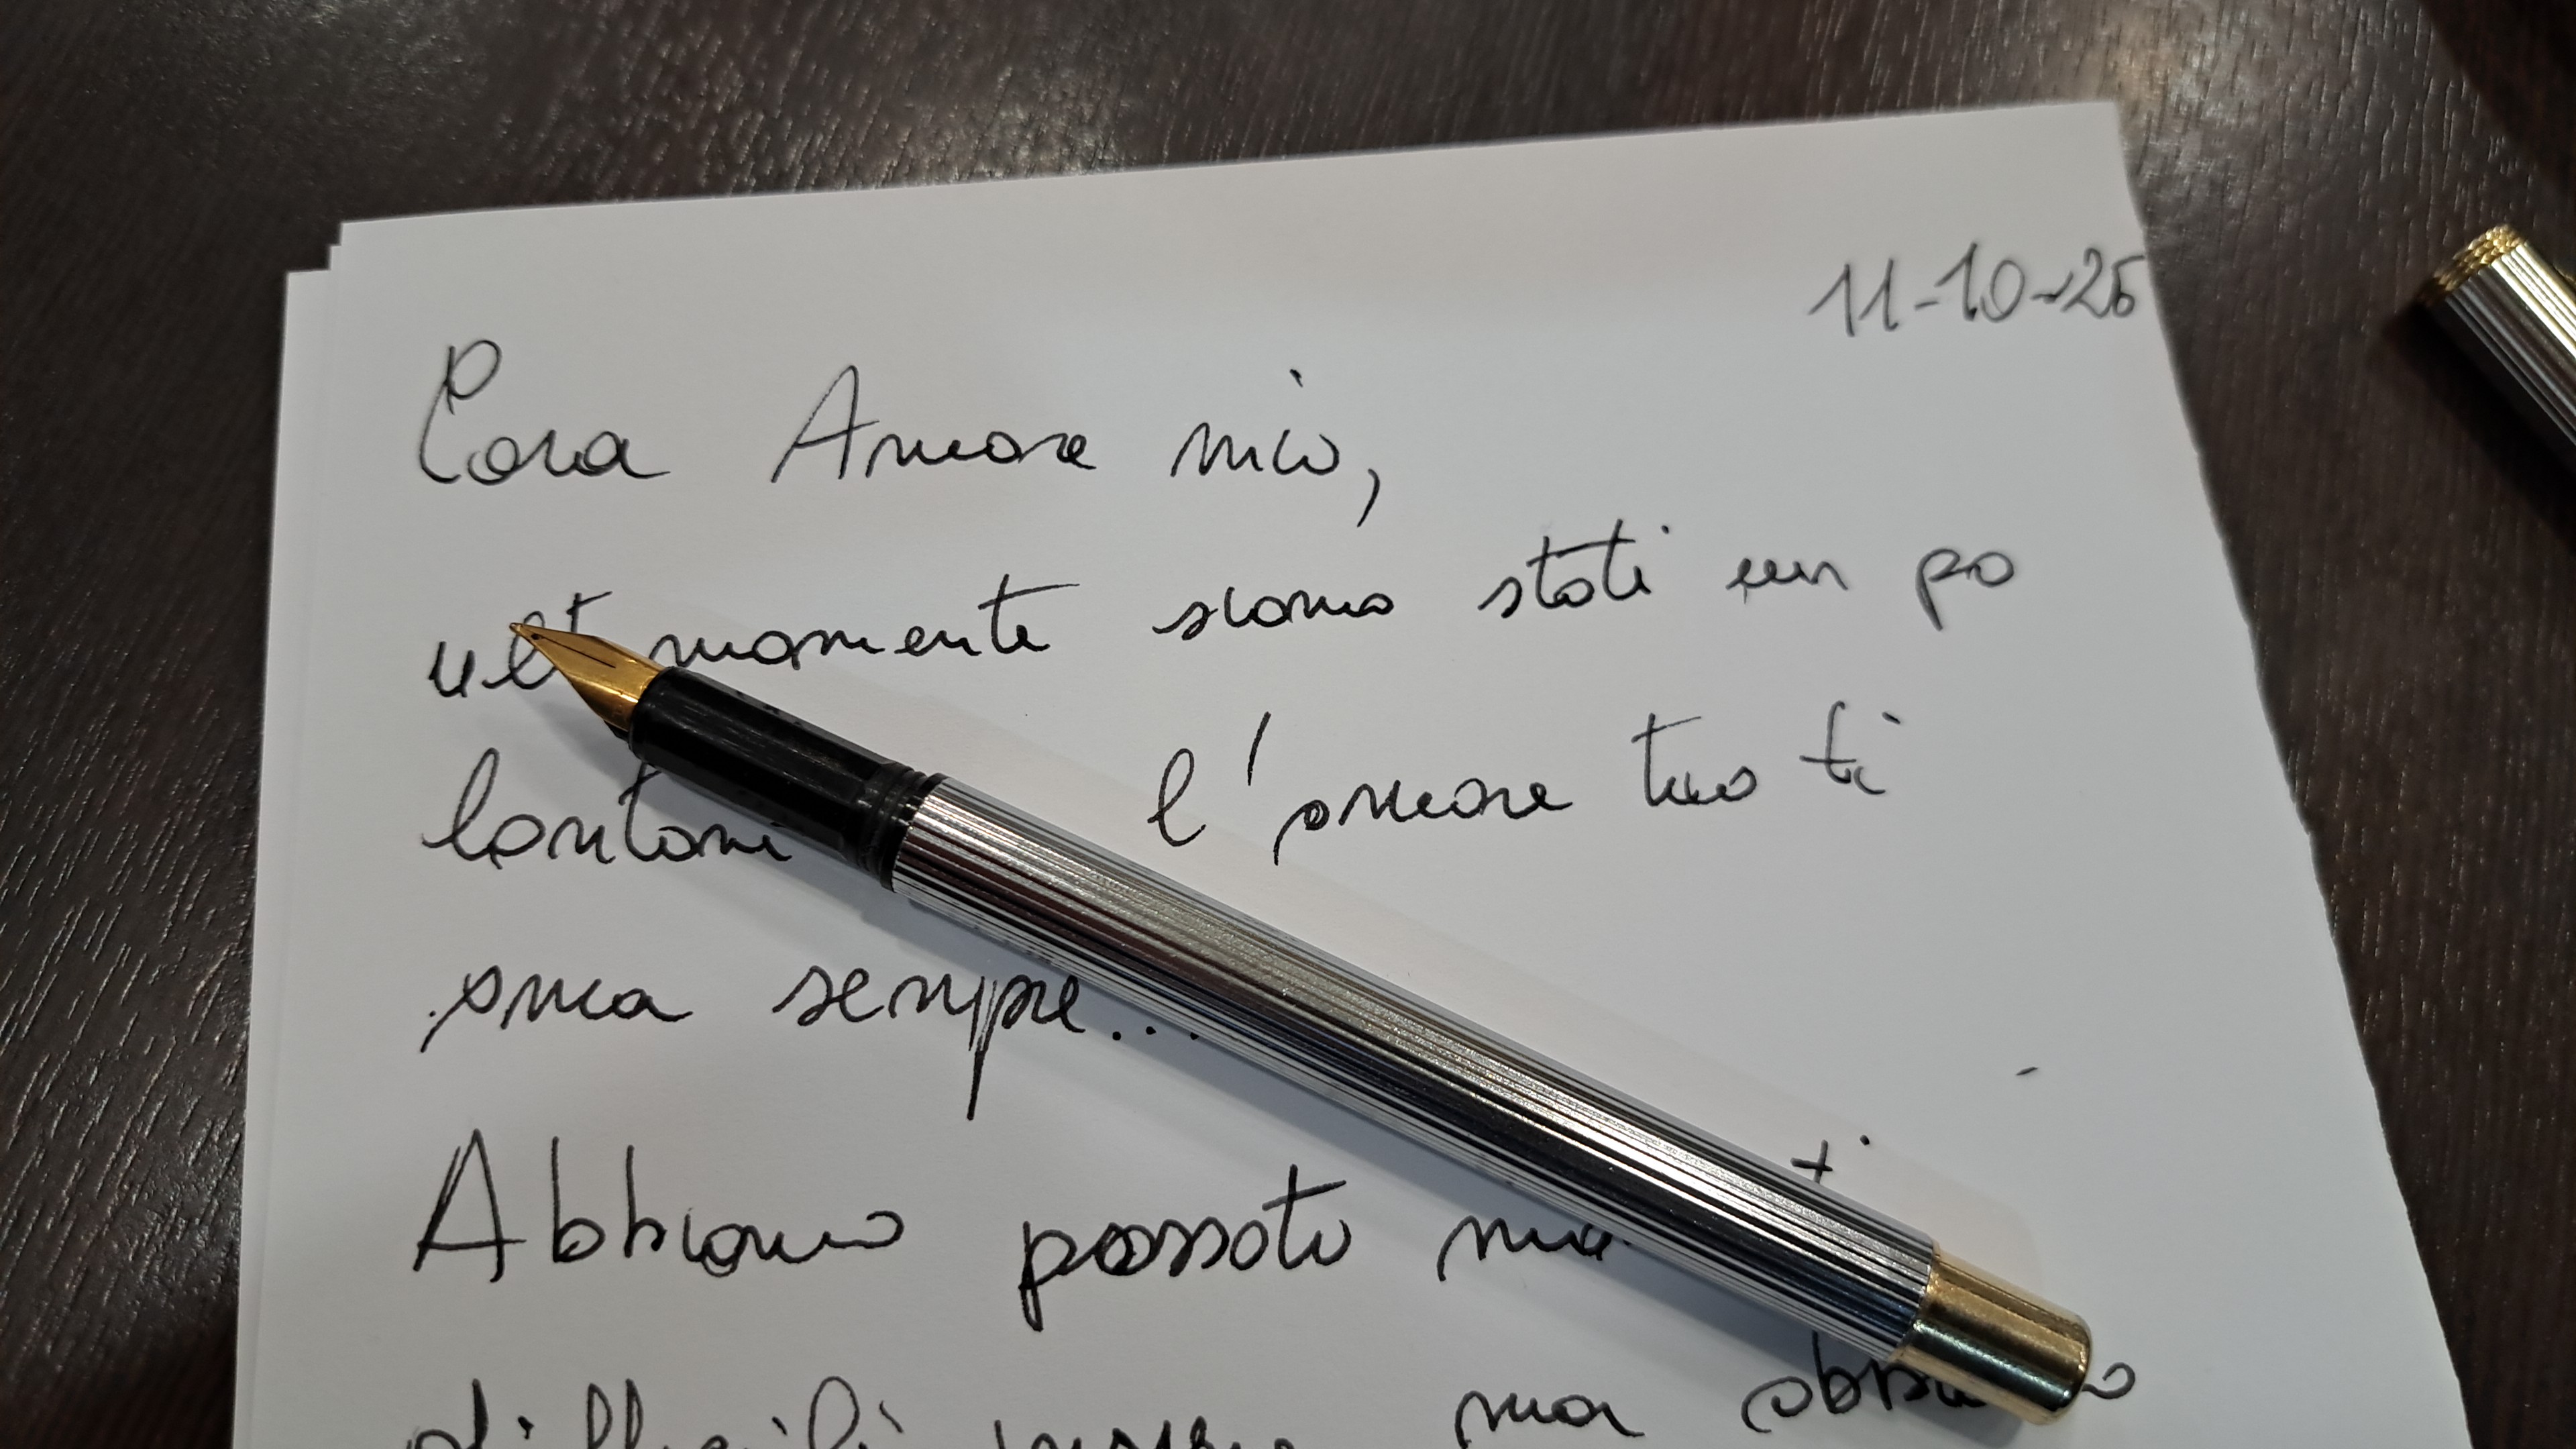 11-10-25
Cara Amore mio,
ultimamente siamo stati un po
lontani l'amore tuo ti
ama sempre...
Abbiamo passato
ma abbiamo